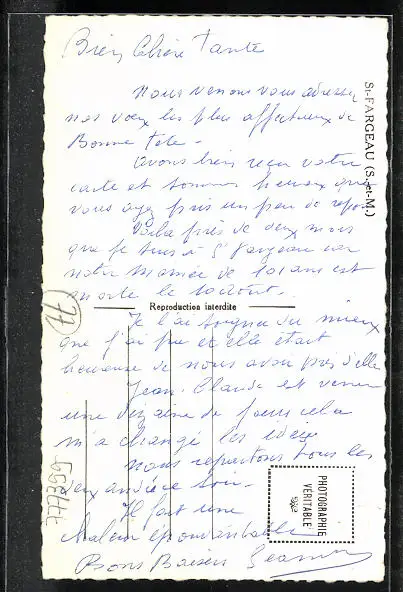 Bien Chère Tante
Nous venons vous adresser
nos vœux les plus affectueux de
Bonne Fête -
Avons bien reçu votre
carte et sommes heureux que
vous ayez pris un peu de repos
Voilà près de deux mois
que je suis à St Fargeau car
notre Mamée de 101 ans est
morte le
Je l'ai soignée du mieux
que j'ai pu et elle était
heureuse de nous avoir près d'elle
Jean-Claude est venu
une dizaine de jours cela
m'a changé les idées
Nous repartons tous les
deux
Il fait une
chaleur épouvantable
Bons Baisers
St-FARGEAU (S.-et-M.)
Reproduction interdite
PHOTOGRAPHIE
VÉRITABLE
77